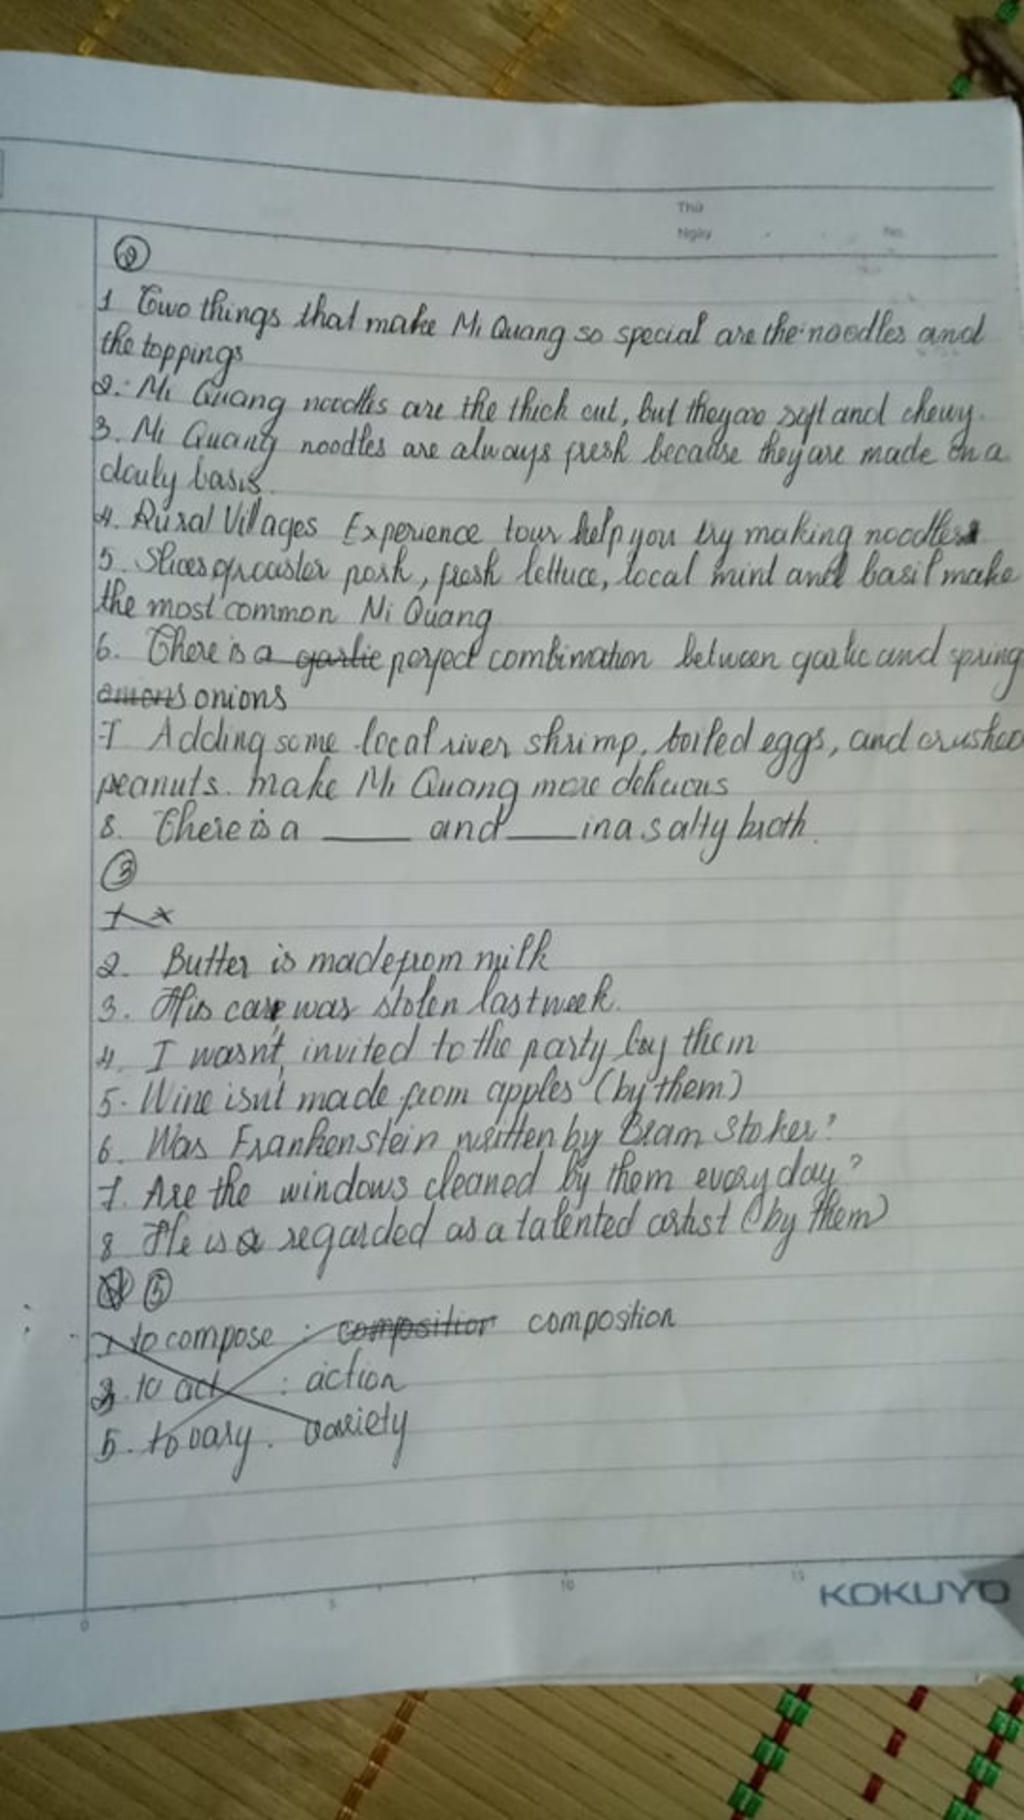 Thứ
Ngày
No.
2
1 Two things that make Mi Quang so special are the noodles and
the toppings
2. Mi Quang noodles are the thick cut, but they are soft and chewy.
3. Mi Quang noodles are always fresh because they are made on a
daily basis.
4. Rural Villages Experience tour help you try making noodles
5. Slices of roaster pork, fresh lettuce, local mint and basil make
the most common Mi Quang
6. There is a garlic perfect combination between garlic and spring
onions onions
7 Adding some local river shrimp, boiled eggs, and crushed
peanuts. make Mi Quang more delicious
8. There is a ____ and ____ in a salty broth.
3
1
2. Butter is made from milk
3. His car was stolen last week.
4. I wasn't invited to the party by them
5. Wine isn't made from apples (by them)
6. Was Frankenstein written by Bram Stoker?
7. Are the windows cleaned by them every day?
8 He is a regarded as a talented artist (by them)
5
1 to compose : composition compostion
2. to act : action
5. to vary : variety
5 10 15
0
KOKUYO